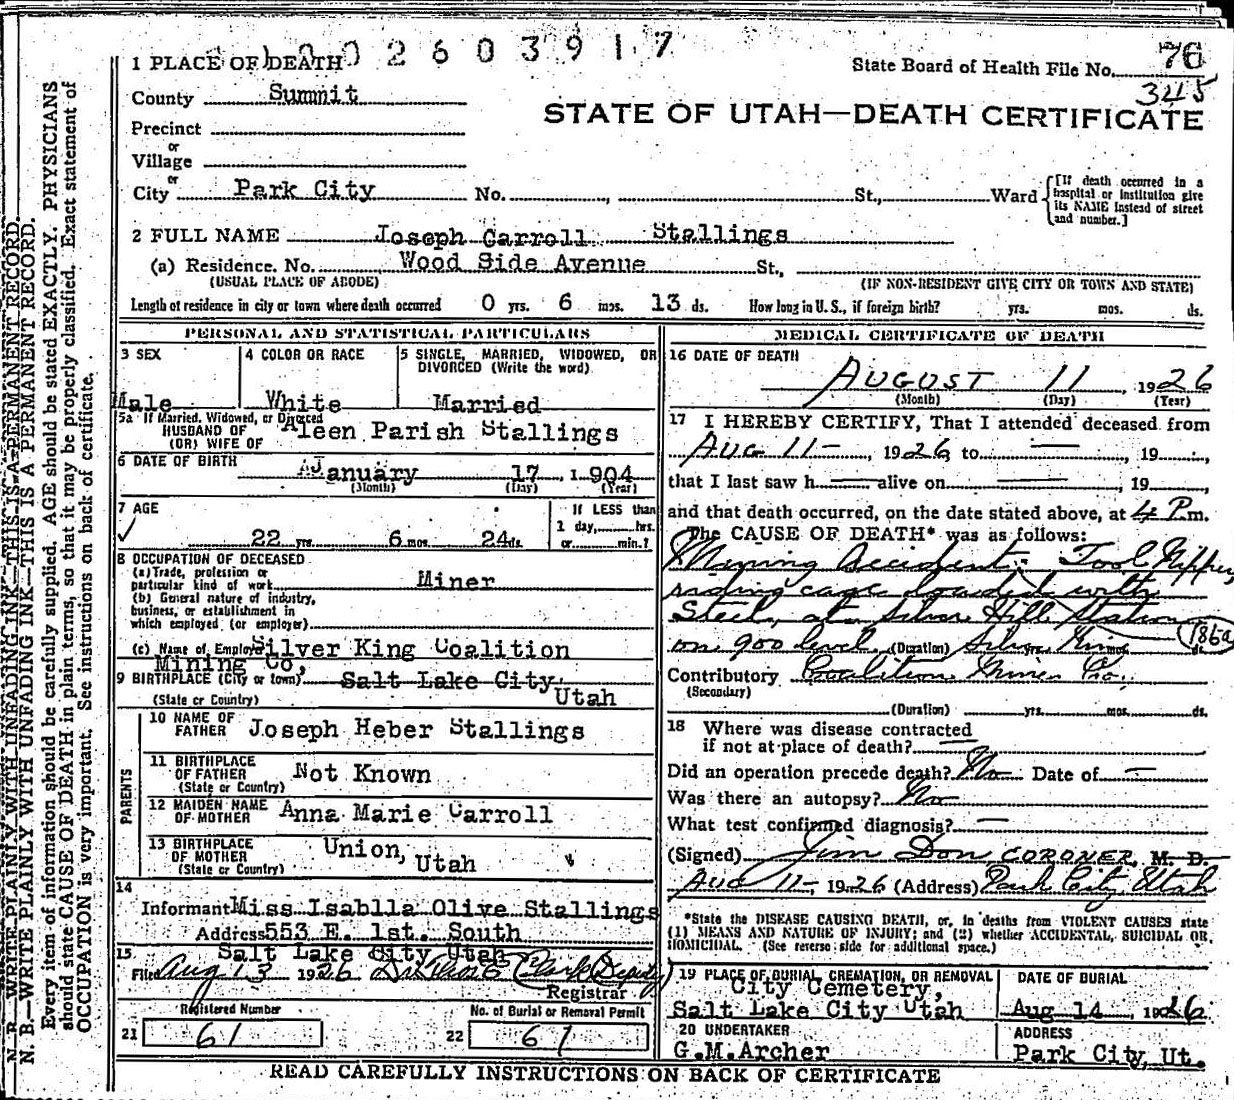 1 PLACE OF DEATH
2603917
State Board of Health File No. 76
345
County Summit
STATE OF UTAH—DEATH CERTIFICATE
Precinct
or
Village
or
City Park City No. , St., Ward
[If death occurred in a hospital or institution give its NAME instead of street and number.]
2 FULL NAME Joseph Carroll Stallings
(a) Residence. No. Wood Side Avenue St.,
(USUAL PLACE OF ABODE) (IF NON-RESIDENT GIVE CITY OR TOWN AND STATE)
Length of residence in city or town where death occurred 0 yrs. 6 mos. 13 ds. How long in U. S., if foreign birth? yrs. mos. ds.
PERSONAL AND STATISTICAL PARTICULARS
3 SEX
Male
4 COLOR OR RACE
White
5 SINGLE, MARRIED, WIDOWED, OR DIVORCED (Write the word)
Married
5a If Married, Widowed, or Divorced
HUSBAND OF
(OR) WIFE OF Aleen Parish Stallings
6 DATE OF BIRTH January 17 1904
(Month) (Day) (Year)
7 AGE
22 yrs. 6 mos. 24 ds.
If LESS than
1 day, hrs.
or min.?
8 OCCUPATION OF DECEASED
(a) Trade, profession or
particular kind of work Miner
(b) General nature of industry,
business, or establishment in
which employed (or employer)
(c) Name of Employer Silver King Coalition
Mining Co,
9 BIRTHPLACE (City or town) Salt Lake City
(State or Country) Utah
PARENTS
10 NAME OF
FATHER Joseph Heber Stallings
11 BIRTHPLACE
OF FATHER Not Known
(State or Country)
12 MAIDEN NAME
OF MOTHER Anna Marie Carroll
13 BIRTHPLACE
OF MOTHER Union, Utah
(State or Country)
14
Informant Miss Isablla Olive Stallings
Address 553 E. 1st. South
Salt Lake City Utah
15
Filed Aug 13 1926 (Deputy)
Registrar
Registered Number
21 61
No. of Burial or Removal Permit
22 61
MEDICAL CERTIFICATE OF DEATH
16 DATE OF DEATH
AUGUST 11, 1926
(Month) (Day) (Year)
17 I HEREBY CERTIFY, That I attended deceased from
Aug 11—, 1926 to —, 19
that I last saw h— alive on —, 19
and that death occurred, on the date stated above, at 4 P.m.
The CAUSE OF DEATH* was as follows:
Mining Accident. Tool Nipper,
riding cage loaded with
Steel, at Silver Hill Station
186a
on 900 level. (Duration) Silver King yrs. mos. ds.
Contributory Coalition Mines Co.
(Secondary)
(Duration) yrs. mos. ds.
18 Where was disease contracted
if not at place of death? —
Did an operation precede death? No Date of —
Was there an autopsy? No
What test confirmed diagnosis? —
(Signed) Jim Don CORONER, M. D.
Aug 11— 1926 (Address) Park City Utah
*State the DISEASE CAUSING DEATH, or, in deaths from VIOLENT CAUSES state
(1) MEANS AND NATURE OF INJURY; and (2) whether ACCIDENTAL, SUICIDAL OR
HOMICIDAL. (See reverse side for additional space.)
19 PLACE OF BURIAL, CREMATION, OR REMOVAL
City Cemetery,
Salt Lake City Utah
DATE OF BURIAL
Aug 14 1926
20 UNDERTAKER
G.M.Archer
ADDRESS
Park City, Ut.
READ CAREFULLY INSTRUCTIONS ON BACK OF CERTIFICATE
N. B.—WRITE PLAINLY WITH UNFADING INK—THIS IS A PERMANENT RECORD.
N. B.—WRITE PLAINLY WITH UNFADING INK—THIS IS A PERMANENT RECORD.
Every item of information should be carefully supplied. AGE should be stated EXACTLY. PHYSICIANS
should state CAUSE OF DEATH in plain terms, so that it may be properly classified. Exact statement of
OCCUPATION is very important. See instructions on back of certificate.